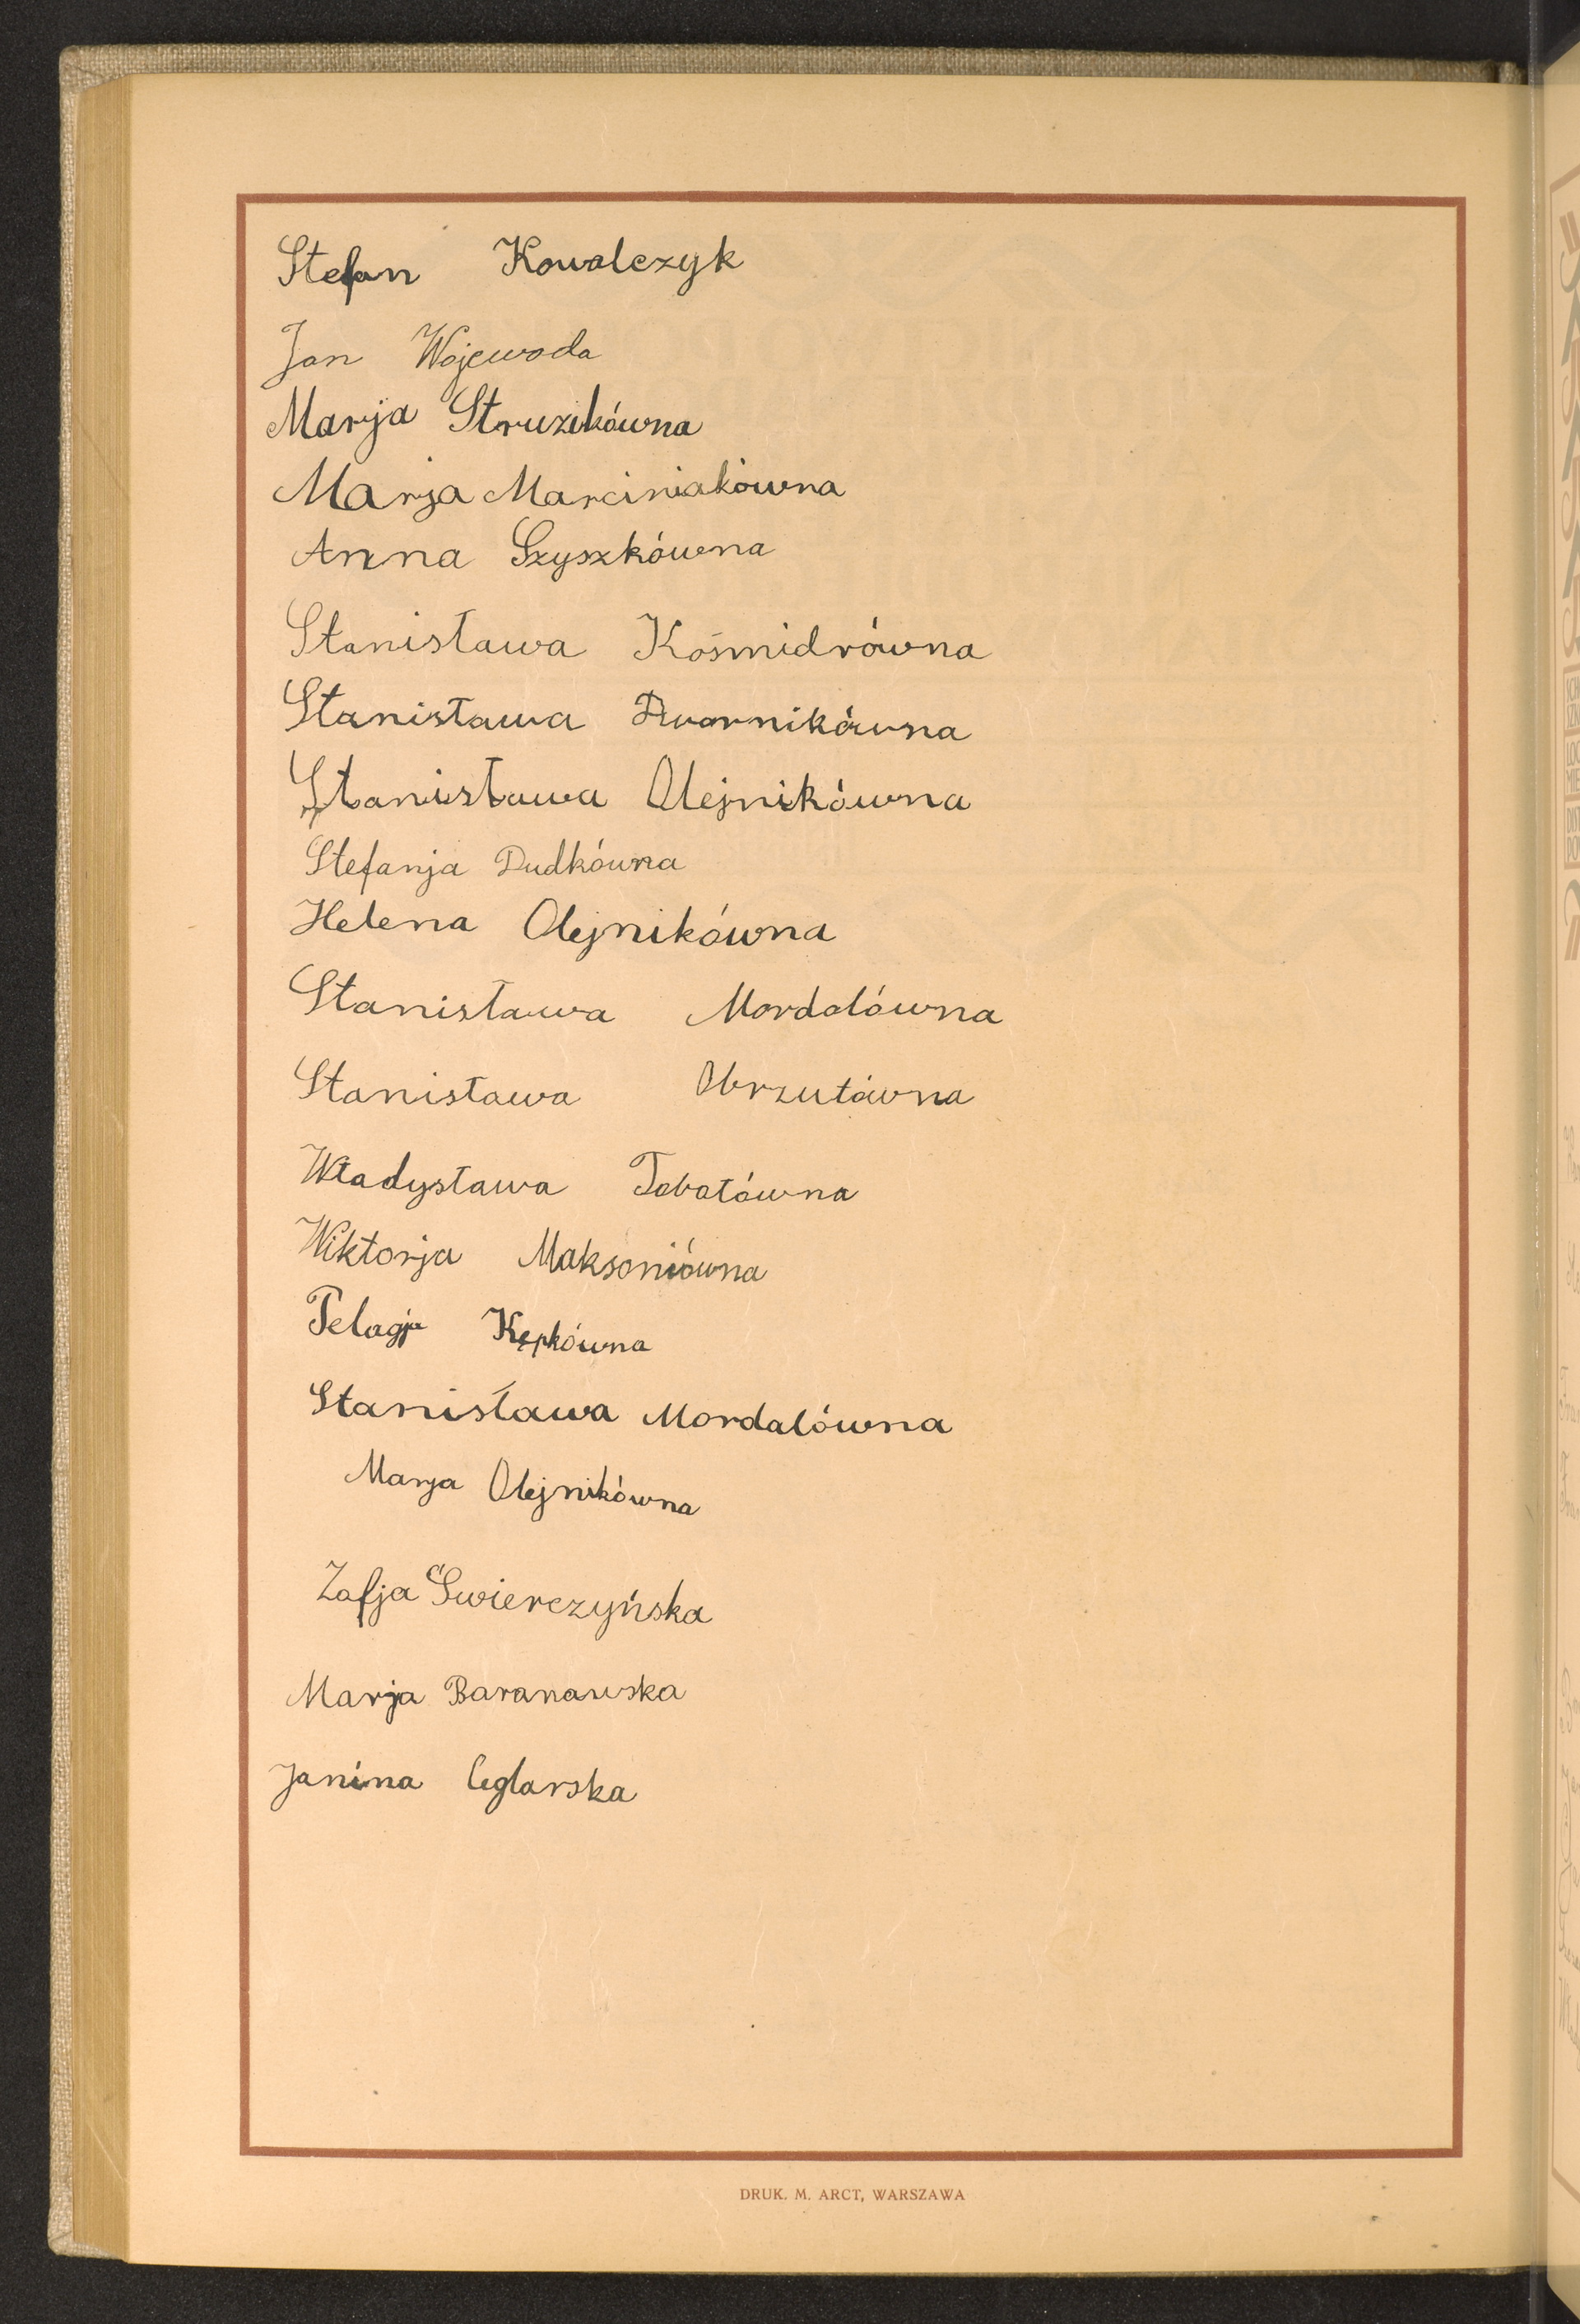 Stefan Kowalczyk
Jan Wojewoda
Marja Struzikówna
Marja Marciniakówna
Anna Szyszkówna
Stanisława Kośmidrówna
Stanisława Dwornikówna
Stanisława Olejnikówna
Stefanja Dudkówna
Helena Olejnikówna
Stanisława Mordalówna
Stanisława Obrzutówna
Władysława Tobołówna
Wiktorja Maksoniówna
Pelagja Kępkówna
Stanisława Mordalówna
Marja Olejnikówna
Zofja Świerczyńska
Marja Baranowska
Janina Ceglarska
DRUK. M. ARCT, WARSZAWA